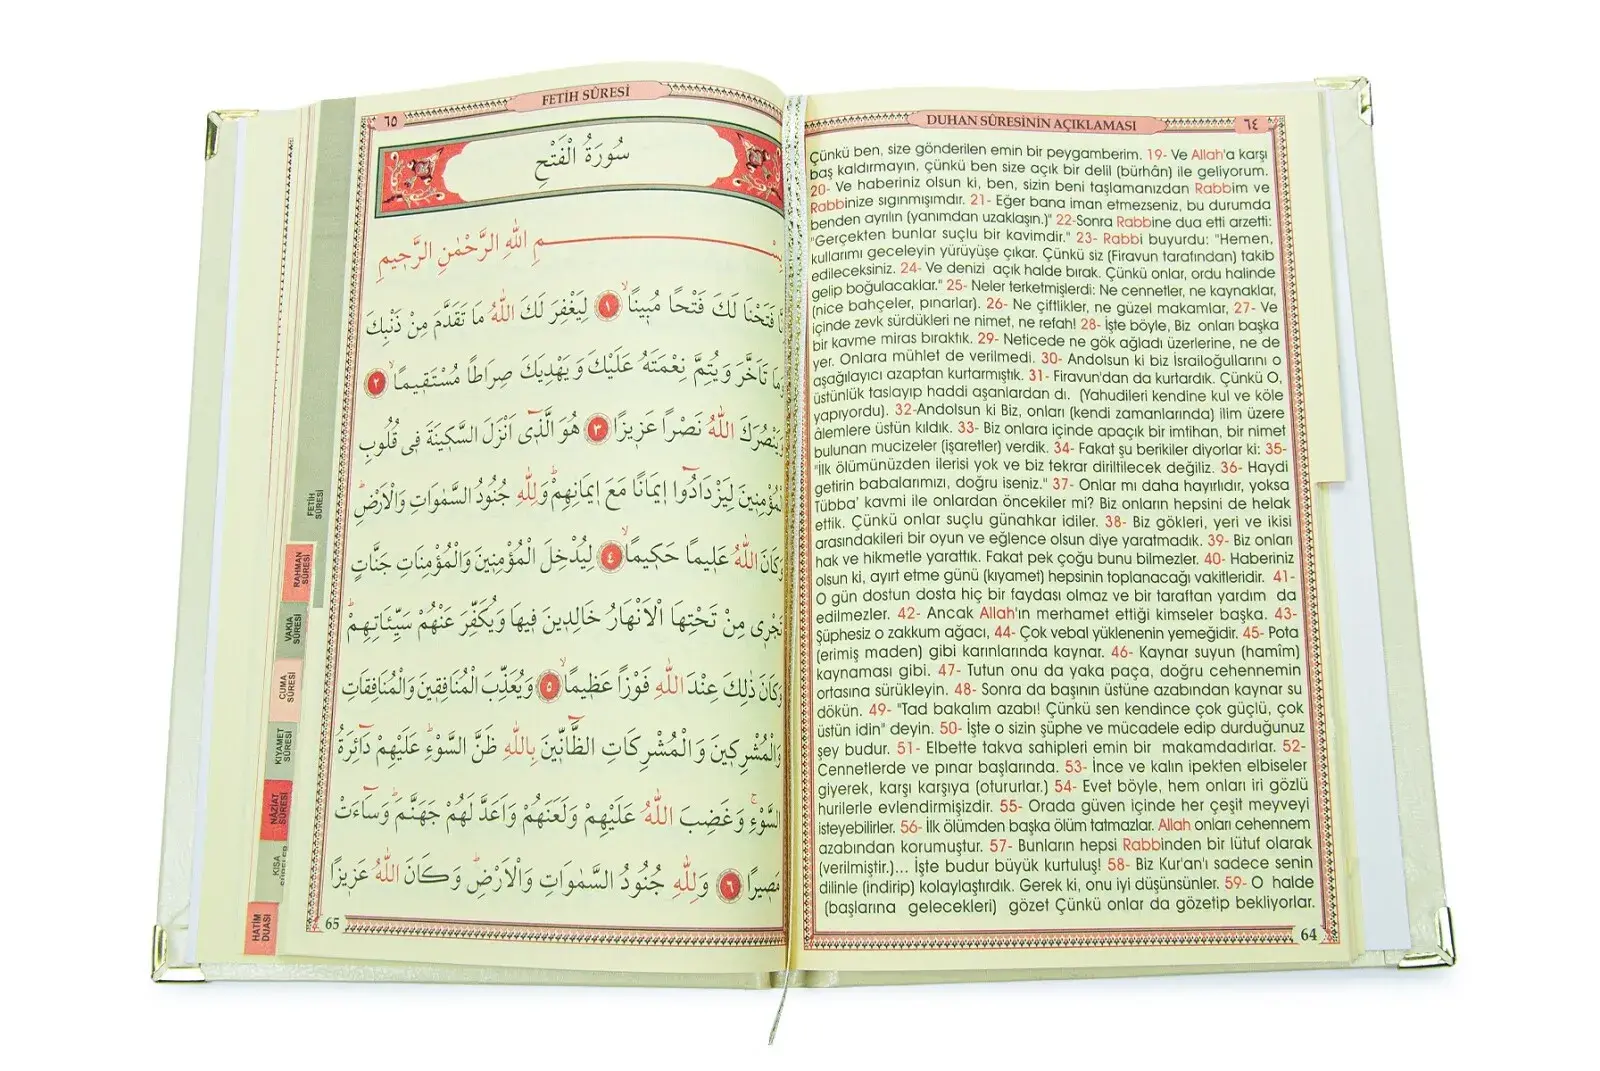 DUHAN SÛRESİNİN AÇIKLAMASI
٦٤
Çünkü ben, size gönderilen emin bir peygamberim. 19- Ve Allah'a karşı
baş kaldırmayın, çünkü ben size açık bir delil (bürhân) ile geliyorum.
20- Ve haberiniz olsun ki, ben, sizin beni taşlamanızdan Rabbim ve
Rabbinize sıgınmışımdır. 21- Eğer bana iman etmezseniz, bu durumda
benden ayrılın (yanımdan uzaklaşın.)" 22-Sonra Rabbine dua etti arzetti:
"Gerçekten bunlar suçlu bir kavimdir." 23- Rabbi buyurdu: "Hemen,
kullarımı geceleyin yürüyüşe çıkar. Çünkü siz (Firavun tarafından) takib
edileceksiniz. 24- Ve denizi açık halde bırak. Çünkü onlar, ordu halinde
gelip boğulacaklar." 25- Neler terketmişlerdi: Ne cennetler, ne kaynaklar,
(nice bahçeler, pınarlar). 26- Ne çiftlikler, ne güzel makamlar, 27- Ve
içinde zevk sürdükleri ne nimet, ne refah! 28- İşte böyle, Biz onları başka
bir kavme miras bıraktık. 29- Neticede ne gök ağladı üzerlerine, ne de
yer. Onlara mühlet de verilmedi. 30- Andolsun ki biz İsrailoğullarını o
aşağılayıcı azaptan kurtarmıştık. 31- Firavun'dan da kurtardık. Çünkü O,
üstünlük taslayıp haddi aşanlardan dı. (Yahudileri kendine kul ve köle
yapıyordu). 32-Andolsun ki Biz, onları (kendi zamanlarında) ilim üzere
âlemlere üstün kıldık. 33- Biz onlara içinde apaçık bir imtihan, bir nimet
bulunan mucizeler (işaretler) verdik. 34- Fakat şu berikiler diyorlar ki: 35-
"İlk ölümünüzden ilerisi yok ve biz tekrar diriltilecek değiliz. 36- Haydi
getirin babalarımızı, doğru iseniz." 37- Onlar mı daha hayırlıdır, yoksa
Tübba' kavmi ile onlardan öncekiler mi? Biz onların hepsini de helak
ettik. Çünkü onlar suçlu günahkar idiler. 38- Biz gökleri, yeri ve ikisi
arasındakileri bir oyun ve eğlence olsun diye yaratmadık. 39- Biz onları
hak ve hikmetle yarattık. Fakat pek çoğu bunu bilmezler. 40- Haberiniz
olsun ki, ayırt etme günü (kıyamet) hepsinin toplanacağı vakitleridir. 41-
O gün dostun dosta hiç bir faydası olmaz ve bir taraftan yardım da
edilmezler. 42- Ancak Allah'ın merhamet ettiği kimseler başka. 43-
Şüphesiz o zakkum ağacı, 44- Çok vebal yüklenenin yemeğidir. 45- Pota
(erimiş maden) gibi karınlarında kaynar. 46- Kaynar suyun (hamîm)
kaynaması gibi. 47- Tutun onu da yaka paça, doğru cehennemin
ortasına sürükleyin. 48- Sonra da başının üstüne azabından kaynar su
dökün. 49- "Tad bakalım azabı! Çünkü sen kendince çok güçlü, çok
üstün idin" deyin. 50- İşte o sizin şüphe ve mücadele edip durduğunuz
şey budur. 51- Elbette takva sahipleri emin bir makamdadırlar. 52-
Cennetlerde ve pınar başlarında. 53- İnce ve kalın ipekten elbiseler
giyerek, karşı karşıya (otururlar.) 54- Evet böyle, hem onları iri gözlü
hurilerle evlendirmişizdir. 55- Orada güven içinde her çeşit meyveyi
isteyebilirler. 56- İlk ölümden başka ölüm tatmazlar. Allah onları cehennem
azabından korumuştur. 57- Bunların hepsi Rabbinden bir lütuf olarak
(verilmiştir.)... İşte budur büyük kurtuluş! 58- Biz Kur'an'ı sadece senin
dilinle (indirip) kolaylaştırdık. Gerek ki, onu iyi düşünsünler. 59- O halde
(başlarına gelecekleri) gözet Çünkü onlar da gözetip bekliyorlar.
64
FETİH SÛRESİ
٦٥
سُورَةُ الْفَتْحِ
بِسْمِ اللّٰهِ الرَّحْمٰنِ الرَّح۪يمِ
فَتَحْنَا لَكَ فَتْحًا مُب۪ينًاۙ ﴿١﴾ لِيَغْفِرَ لَكَ اللّٰهُ مَا تَقَدَّمَ مِنْ ذَنْبِكَ
وَمَا تَاَخَّرَ وَيُتِمَّ نِعْمَتَهُ عَلَيْكَ وَيَهْدِيَكَ صِرَاطًا مُسْتَق۪يمًاۙ ﴿٢﴾
وَيَنْصُرَكَ اللّٰهُ نَصْرًا عَز۪يزًا ﴿٣﴾ هُوَ الَّذ۪ٓي اَنْزَلَ السَّك۪ينَةَ ف۪ي قُلُوبِ
الْمُؤْمِن۪ينَ لِيَزْدَادُٓوا ا۪يمَانًا مَعَ ا۪يمَانِهِمْۜ وَلِلّٰهِ جُنُودُ السَّمٰوَاتِ وَالْاَرْضِۜ
وَكَانَ اللّٰهُ عَل۪يمًا حَك۪يمًاۙ ﴿٤﴾ لِيُدْخِلَ الْمُؤْمِن۪ينَ وَالْمُؤْمِنَاتِ جَنَّاتٍ
تَجْر۪ي مِنْ تَحْتِهَا الْاَنْهَارُ خَالِد۪ينَ ف۪يهَا وَيُكَفِّرَ عَنْهُمْ سَيِّـَٔاتِهِمْۜ
وَكَانَ ذٰلِكَ عِنْدَ اللّٰهِ فَوْزًا عَظ۪يمًاۙ ﴿٥﴾ وَيُعَذِّبَ الْمُنَافِق۪ينَ وَالْمُنَافِقَاتِ
وَالْمُشْرِك۪ينَ وَالْمُشْرِكَاتِ الظَّٓانّ۪ينَ بِاللّٰهِ ظَنَّ السَّوْءِۜ عَلَيْهِمْ دَٓائِرَةُ
السَّوْءِۚ وَغَضِبَ اللّٰهُ عَلَيْهِمْ وَلَعَنَهُمْ وَاَعَدَّ لَهُمْ جَهَنَّمَۜ وَسَٓاءَتْ
مَص۪يرًا ﴿٦﴾ وَلِلّٰهِ جُنُودُ السَّمٰوَاتِ وَالْاَرْضِۜ وَكَانَ اللّٰهُ عَز۪يزًا
65
FETİH
SÛRESİ
RAHMAN
SÛRESİ
VAKIA
SÛRESİ
CUMA
SÛRESİ
KIYAMET
SÛRESİ
NÂZİAT
SÛRESİ
KISA
HATİM
DUASI